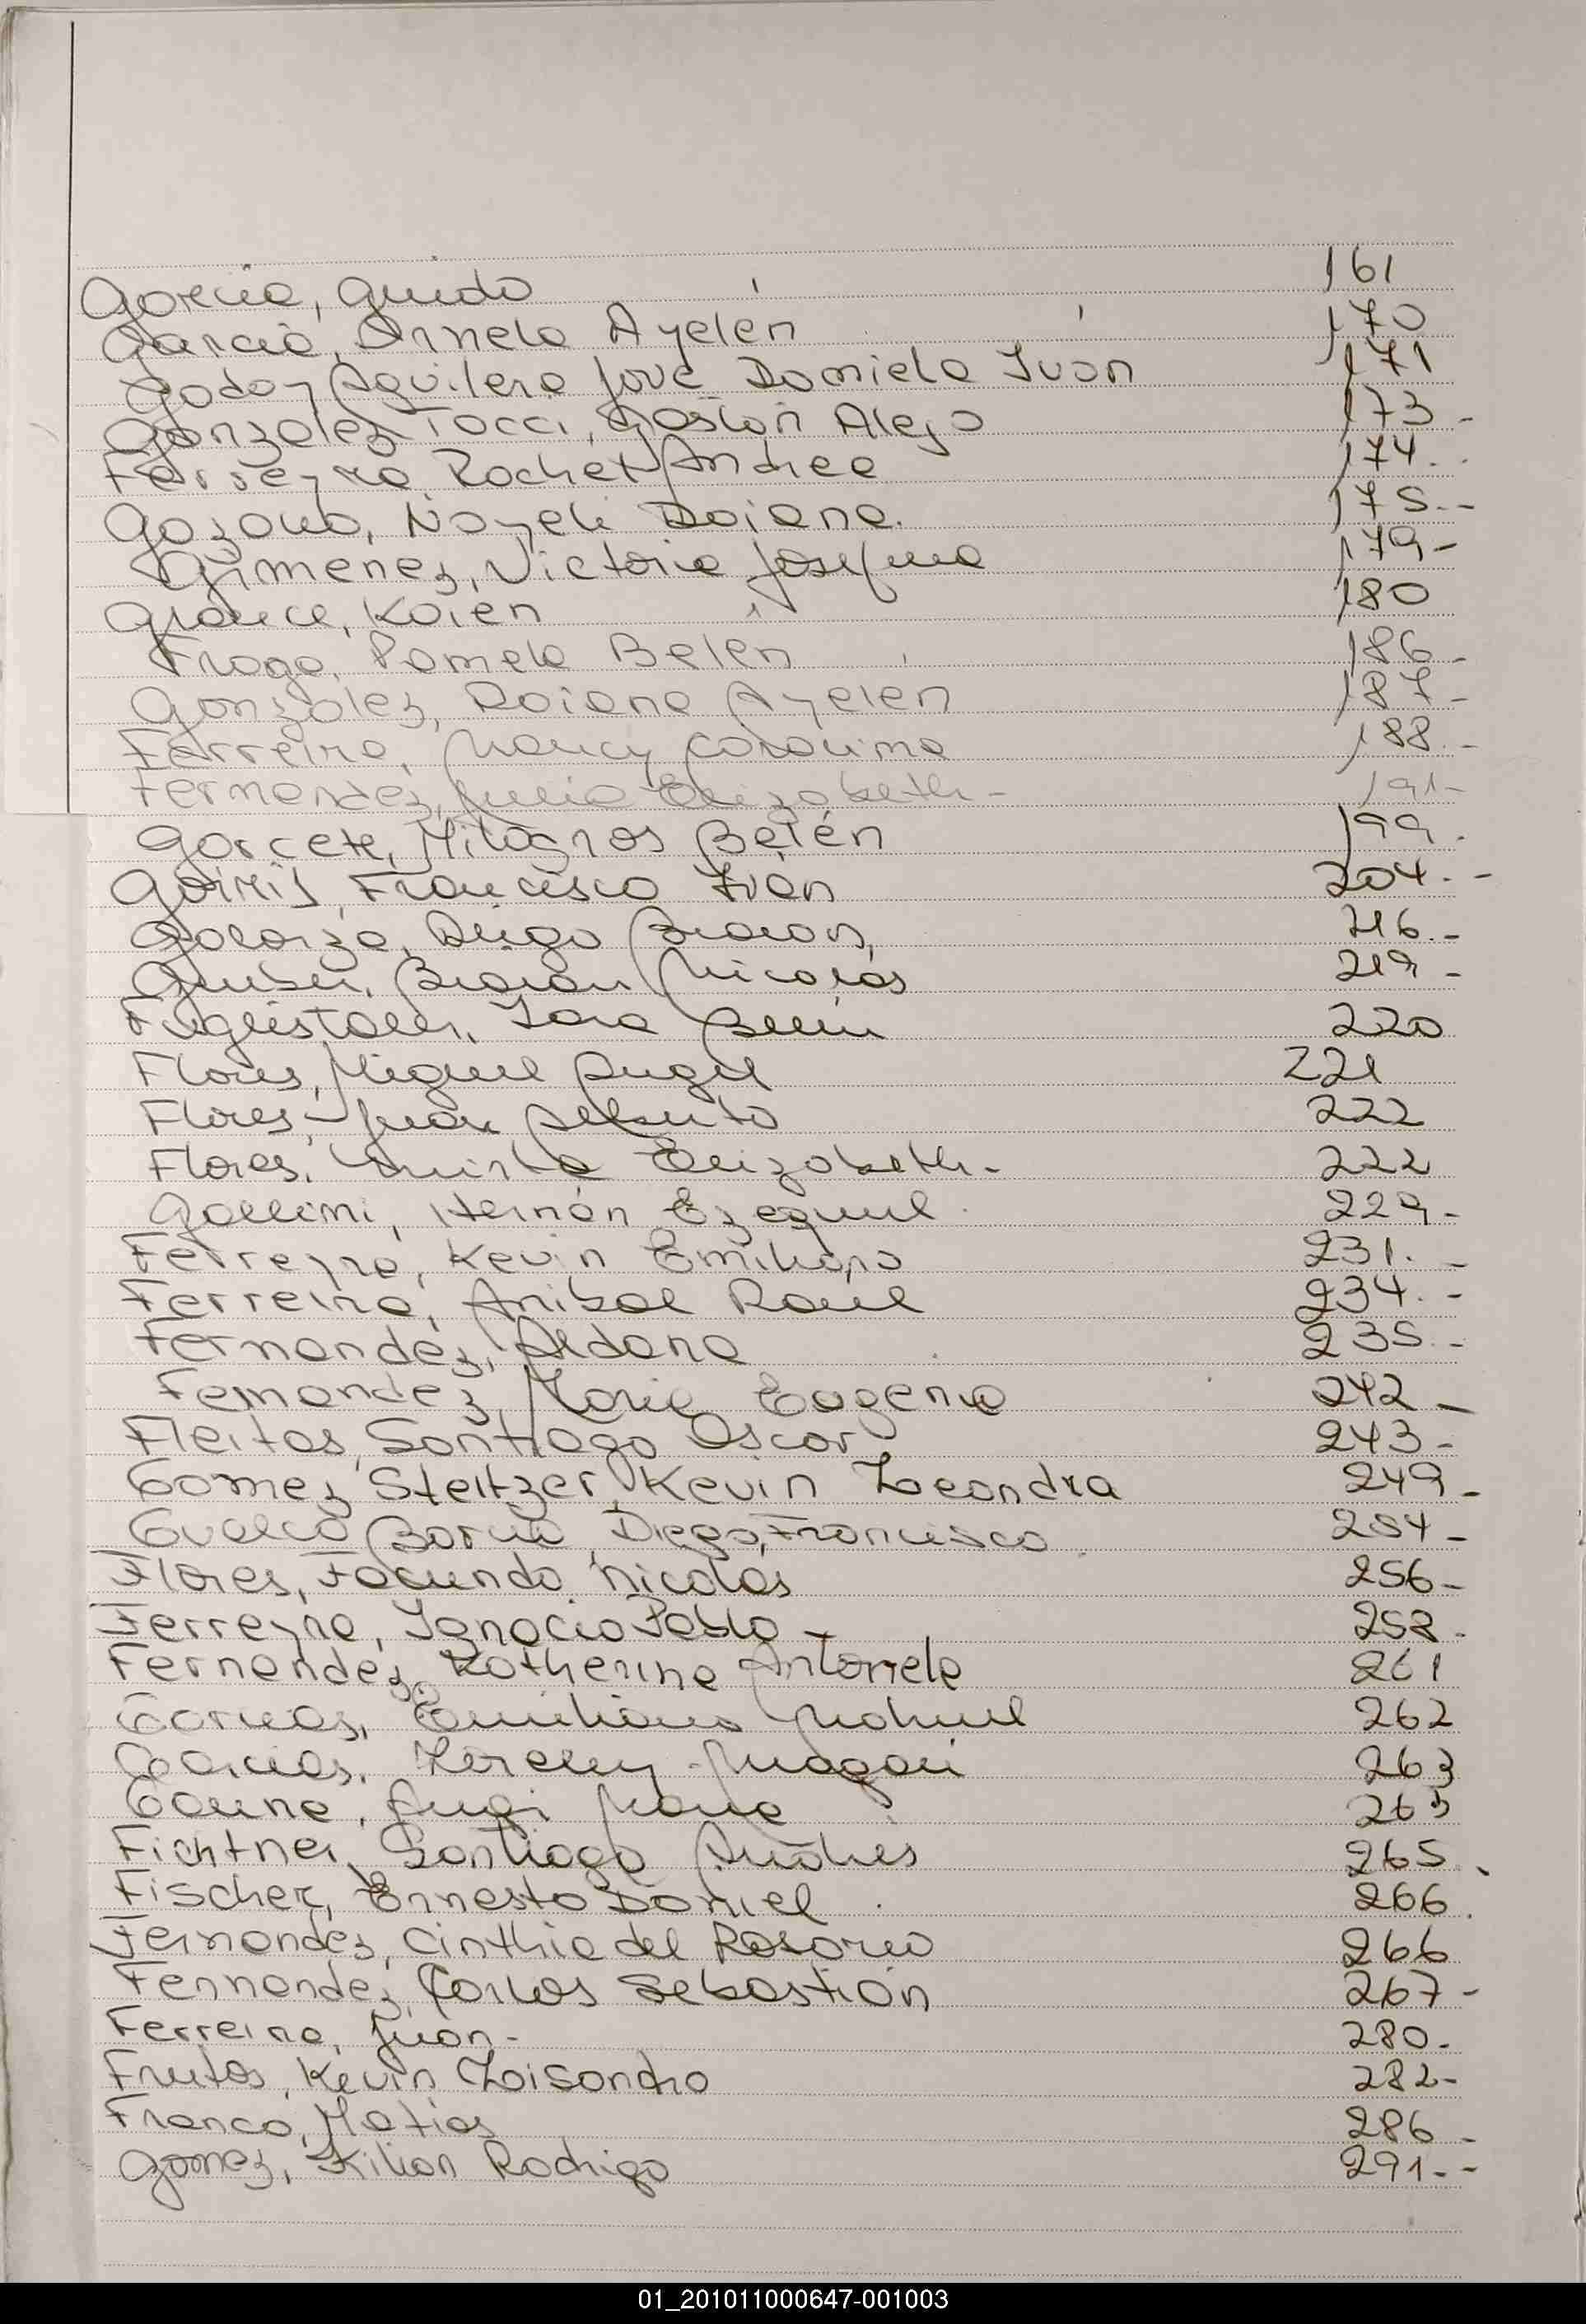 Garcia, Guido 161
Garcia, Ornela Ayelén 170
Godoy Aguilera José Daniela Ivan 171
Gonzalez Tocci, Gastón Alejo 173-
Ferreyra, Rochet Andrea 174.
Gazano, Nayeli Daiana. 175--
Gimenez, Victoria Josefina 179-
Grance, Karen 180
Fraga, Pamela Belén 186-
Gonzalez, Daiana Ayelén 187-
Ferreira, Nancy Carolina 188.-
Fernandez, Julia Elizabeth- 191-
Garcete, Milagros Belén 199.
Francisco Iván 204.-
Galarza, Diego Braian, 216.-
Gruber, Braian Nicolás 219-
Fuglistaler, Iara Belén 220
Flores, Miguel Angel 221
Flores, Juan Alberto 222
Flores, Elizabeth- 222
Gallini, Hernán Ezequiel. 229-
Ferreyra, Kevin Emiliano 231.-
Ferreira, Anibal Raúl 234.-
Fernandez, Aldana 235.-
Fernandez, Maria Eugenia 242-
Fleitas, Santiago Oscar 243-
Gomez Steltzer, Kevin Leandra 249-
Diego, Francisco. 254-
Flores, Facundo Nicolás 256-
Ferreyra, Ignacio Pablo- 258-
Fernandez, Katherine Antonela 261
Emiliano Nahuel 262
Magali 263
Gauna, Angi Maria 263
Fichtner, Santiago Andres 265.
Fischer, Ernesto Daniel. 266.
Fernandez, Cinthia del Rosario 266
Fernandez, Carlos Sebastián 267-
Ferreira, Juan- 280-
Frutos, Kevin Lisandro 282-
Franco, Matias 286-
Gomez, Kilian Rodrigo 291--
01_201011000647-001003